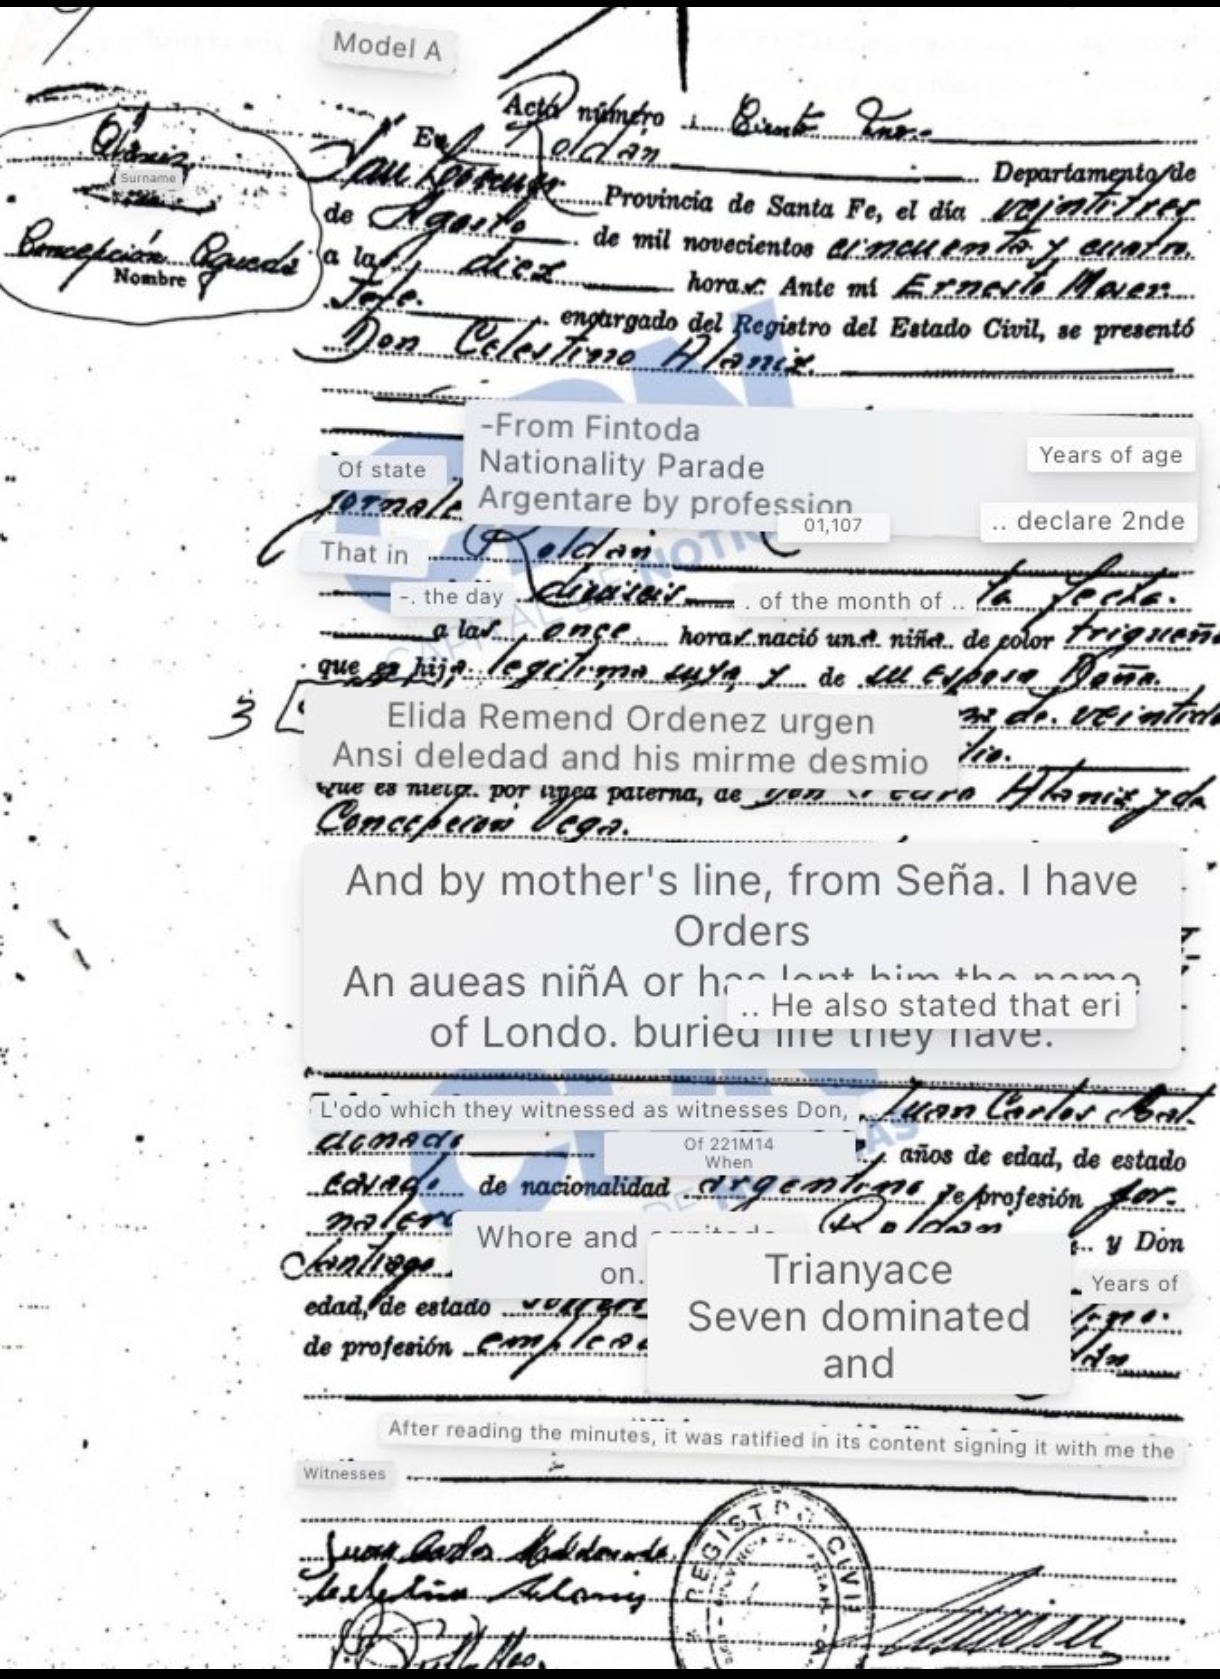 Model A
Acta número Ciento Uno.-
En Roldán
Alániz
Surname
San Lorenzo Departamento de
Provincia de Santa Fe, el día veintitres
de Agosto de mil novecientos cincuenta y cuatro.
Concepción Agueda
Nombre
a las diez horas. Ante mí Ernesto Moser.
Jefe. encargado del Registro del Estado Civil, se presentó
Don Celestino Alaniz.
-From Fintoda
Nationality Parade
Years of age
Of state
Argentare by profession
jornale
01,107
.. declare 2nde
That in Roldán
-. the day dieciseis . of the month of .. la fecha.
a las once horas nació una niña de color trigueño
que es hija legítima suya y de su esposa Doña.
3
Elida Remend Ordenez urgen
de veintido
Ansi deledad and his mirme desmio
lio.
que es nieta. por línea paterna, de Don Pedro Alaniz y da
Concepcion Vega.
And by mother's line, from Seña. I have
Orders
An aueas niñA or has lent him the name
.. He also stated that eri
of Londo. buried life they have.
L'odo which they witnessed as witnesses Don, Juan Carlos Mal-
donado
Of 221M14
When
años de edad, de estado
casado. de nacionalidad argentino de profesión jor-
nalero Roldán
Whore and
on.
y Don
Santiago
Trianyace
Years of
edad, de estado soltero
Seven dominated
de profesión emplea
and
After reading the minutes, it was ratified in its content signing it with me the
Witnesses
Juan Carlos Maldonado
Celestino Alaniz
REGISTRO CIVIL
CAPITAL DE NOTICIAS